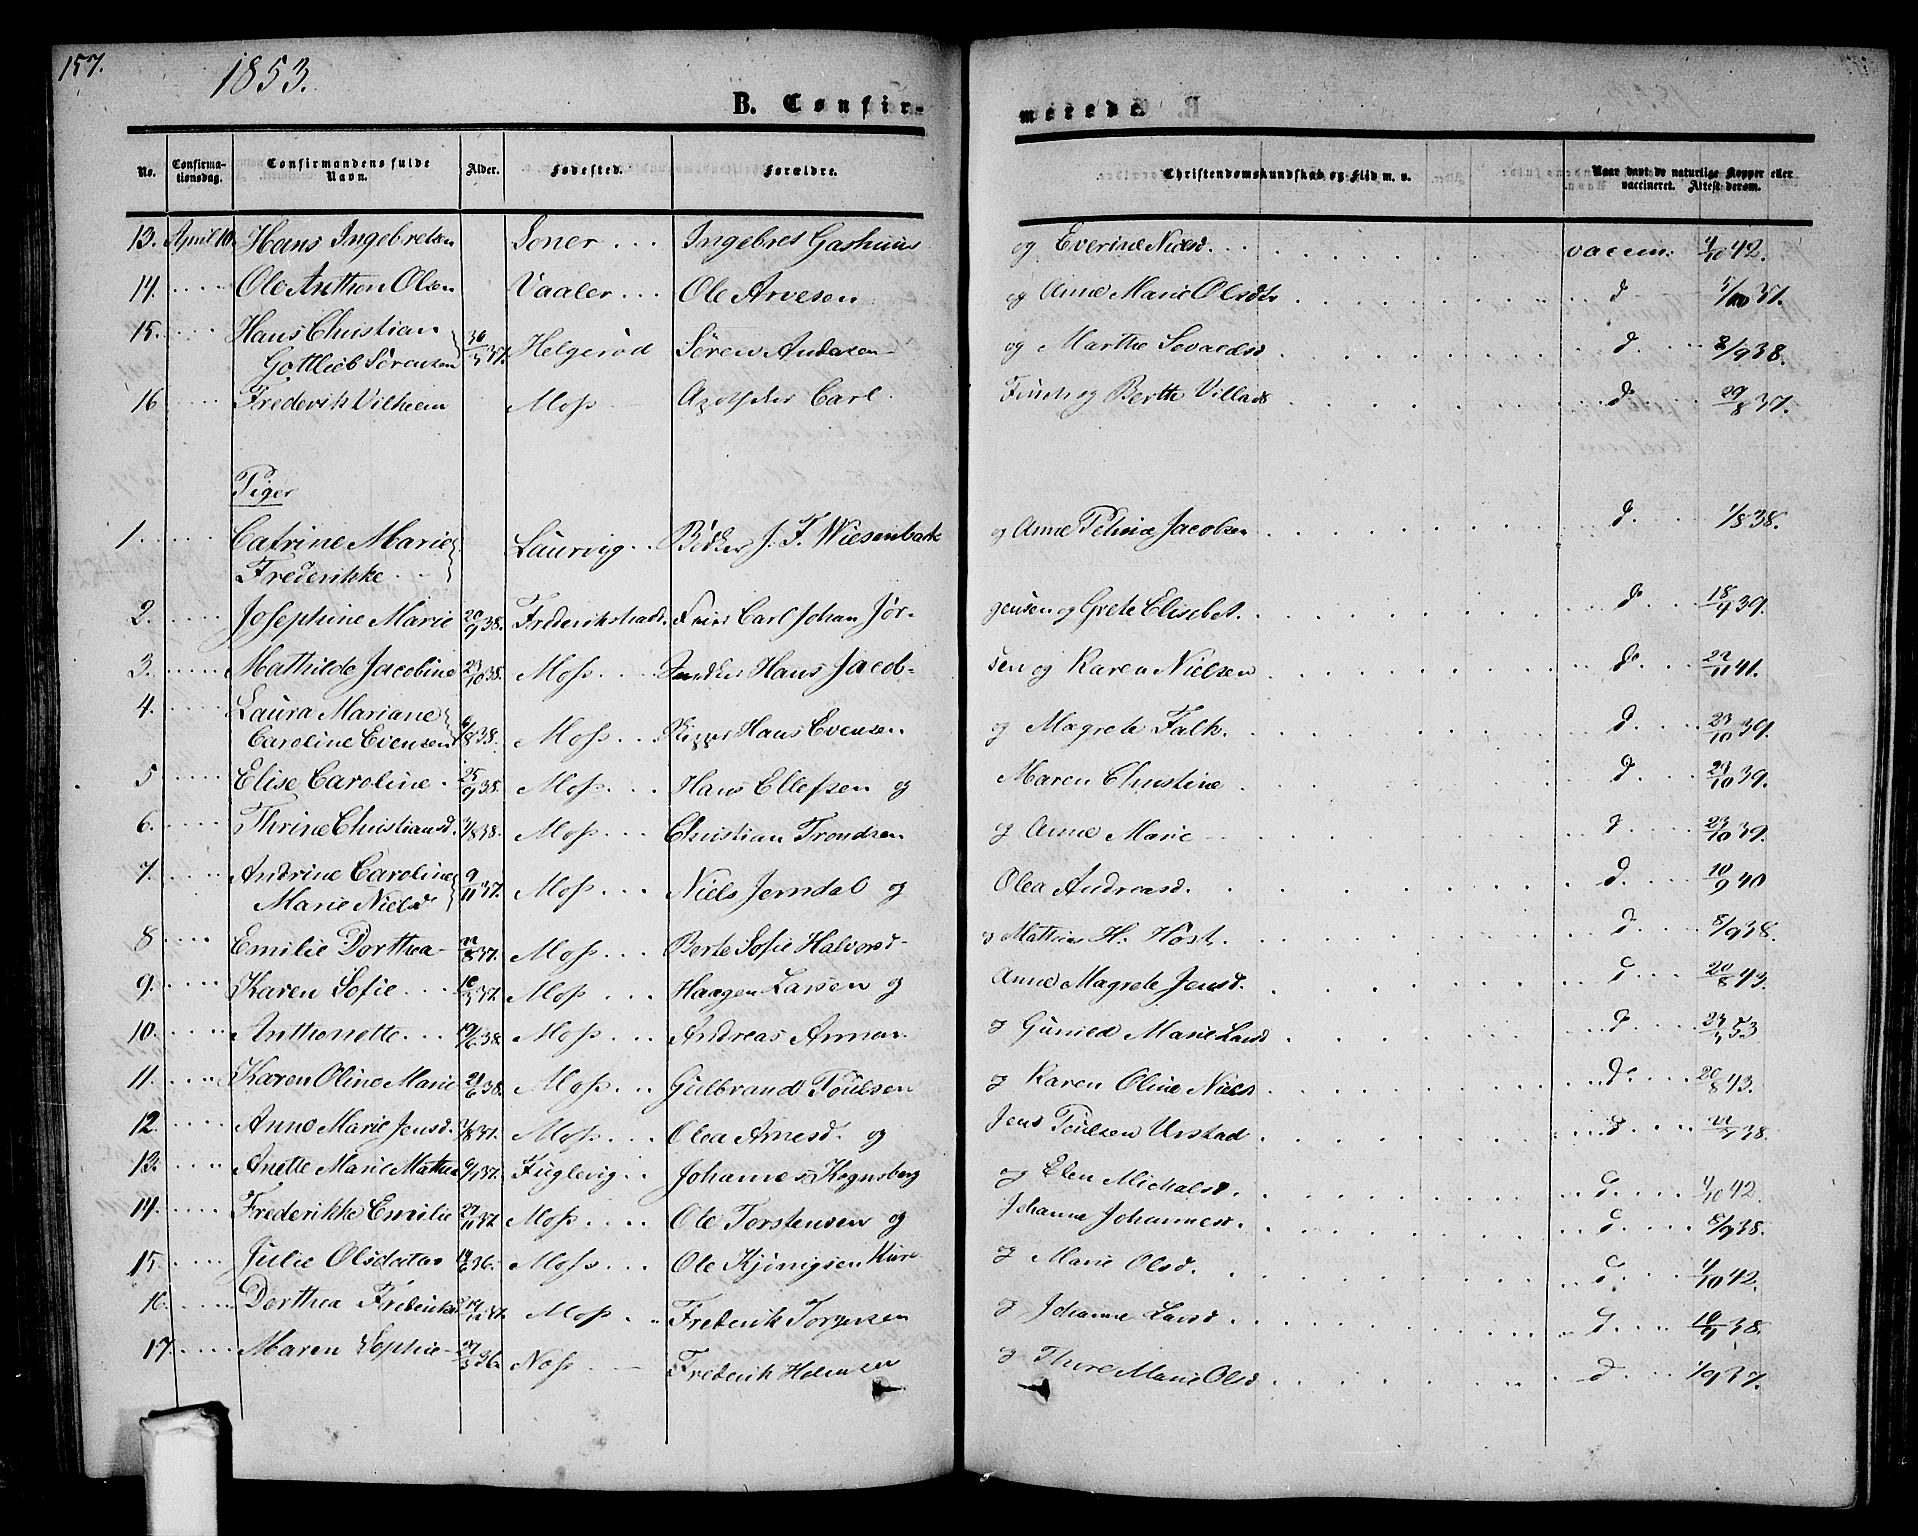 157.
1853.
B. Confir-
merede.
No.
Confirma-
tionsdag.
Confirmandens fulde
Navn.
Alder.
Fødested.
Forældre.
Christendomskundskab og Flid m. v.
Naar havt de naturlige Kopper eller
vaccineret. Attest derom.
13. April 10 Hans Ingebretsen Soner Ingebret og Everine Nielsd. vaccin. 4/10 42.
14. Ole Anthon Olsen Vaaler Ole Arvesen og Anne Marie Olsdt d 37.
15. Hans Christian
Gottlieb Sørensen 37. Helgerød Søren Andersen og Marthe d. 8/9 38.
16 Frederik Vilhelm Moss Carl og Berthe Villads d. 29/8 37.
Piger
1. Catrine Marie
Frederikke Laurvig J. F. Wiesenback og Anne Jacobsen d. 1/8 38.
2. Josephine Marie 20/9 38. Frederikstad Carl Johan Jør-
gensen og Grete Elisebet. d. 39.
3. Mathilde Jacobine 23/10 38. Moss Hans Jacob-
sen og Karen Nielsen d. 41.
4. Laura Mariane
Caroline Evensen 38. Moss Hans Evensen og Magrete Falk. d. 23/10 39.
5 Elise Caroline 25/9 38. Moss Hans Ellefsen og Maren Christine d 23/10 39.
6. Thrine Christiansd. 38. Moss Christian Trondsen og Anne Marie d 23/10 39.
7. Andrine Caroline
Marie Nielsd 9/11 37. Moss Niels Jerndal og Olea Andreasd. d. 10/9 40
8 Emilie Dorthea 37. Moss Berte Sofie Halvorsd Mathias H. Høst. d 8/9 38.
9. Karen Sofie 37. Moss Haagen Larsen og Anne Magrete Jensd. d 20/8 43.
10. Anthonette 38. Moss Andreas og Marie Larsd d 53
11. Karen Oline Marie 21/6 38. Moss Gulbrand og Karen Oline Niels d. 20/8 43.
12. Anne Marie Jensd. 37. Moss Olea Arnesd. og Jens Urstad d. 38.
13. Anette Marie 37. Fuglevig Johannes og Elen d. 4/10 42.
14. Frederikke Emilie 37. Moss Ole Torstensen og Johanne Johannesd. d. 8/9 38.
15. Julie Olsdatter 36. Moss Ole og Marie Olsd. d. 4/10 42.
16. Dorthea 37. Moss Frederik og Johanne Larsd. d. 38.
17. Maren Sophie 36. Moss Frederik og Thore Marie Olsd d. 1/9 37.